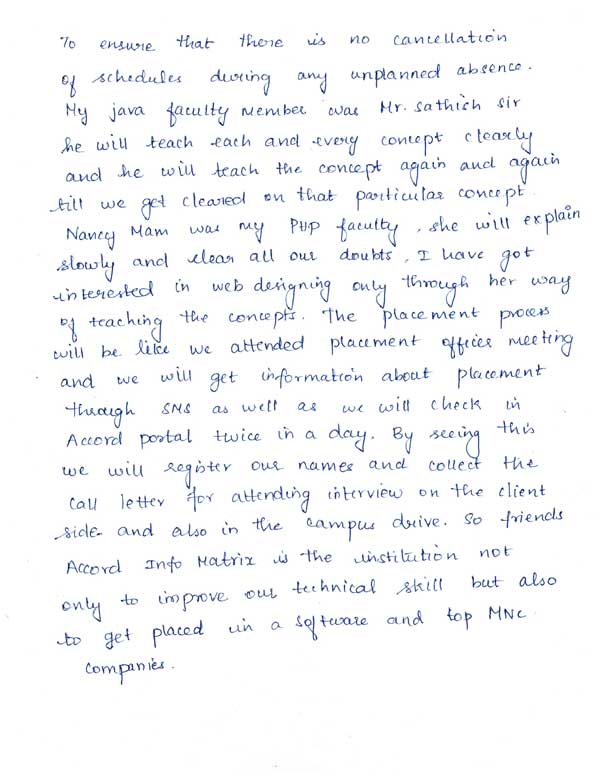 To ensure that there is no cancellation
of schedules during any unplanned absence.
My java faculty member was Mr. Sathish sir
he will teach each and every concept clearly
and he will teach the concept again and again
till we get cleared on that particular concept.
Nancy Mam was my PHP faculty, she will explain
slowly and clear all our doubts, I have got
interested in web designing only through her way
of teaching the concepts. The placement process
will be like we attended placement officer meeting
and we will get information about placement
through SMS as well as we will check in
Accord portal twice in a day. By seeing this
we will register our names and collect the
call letter for attending interview on the client
side and also in the campus drive. So friends
Accord Info Matrix is the institution not
only to improve our technical skill but also
to get placed in a software and top MNC
companies.